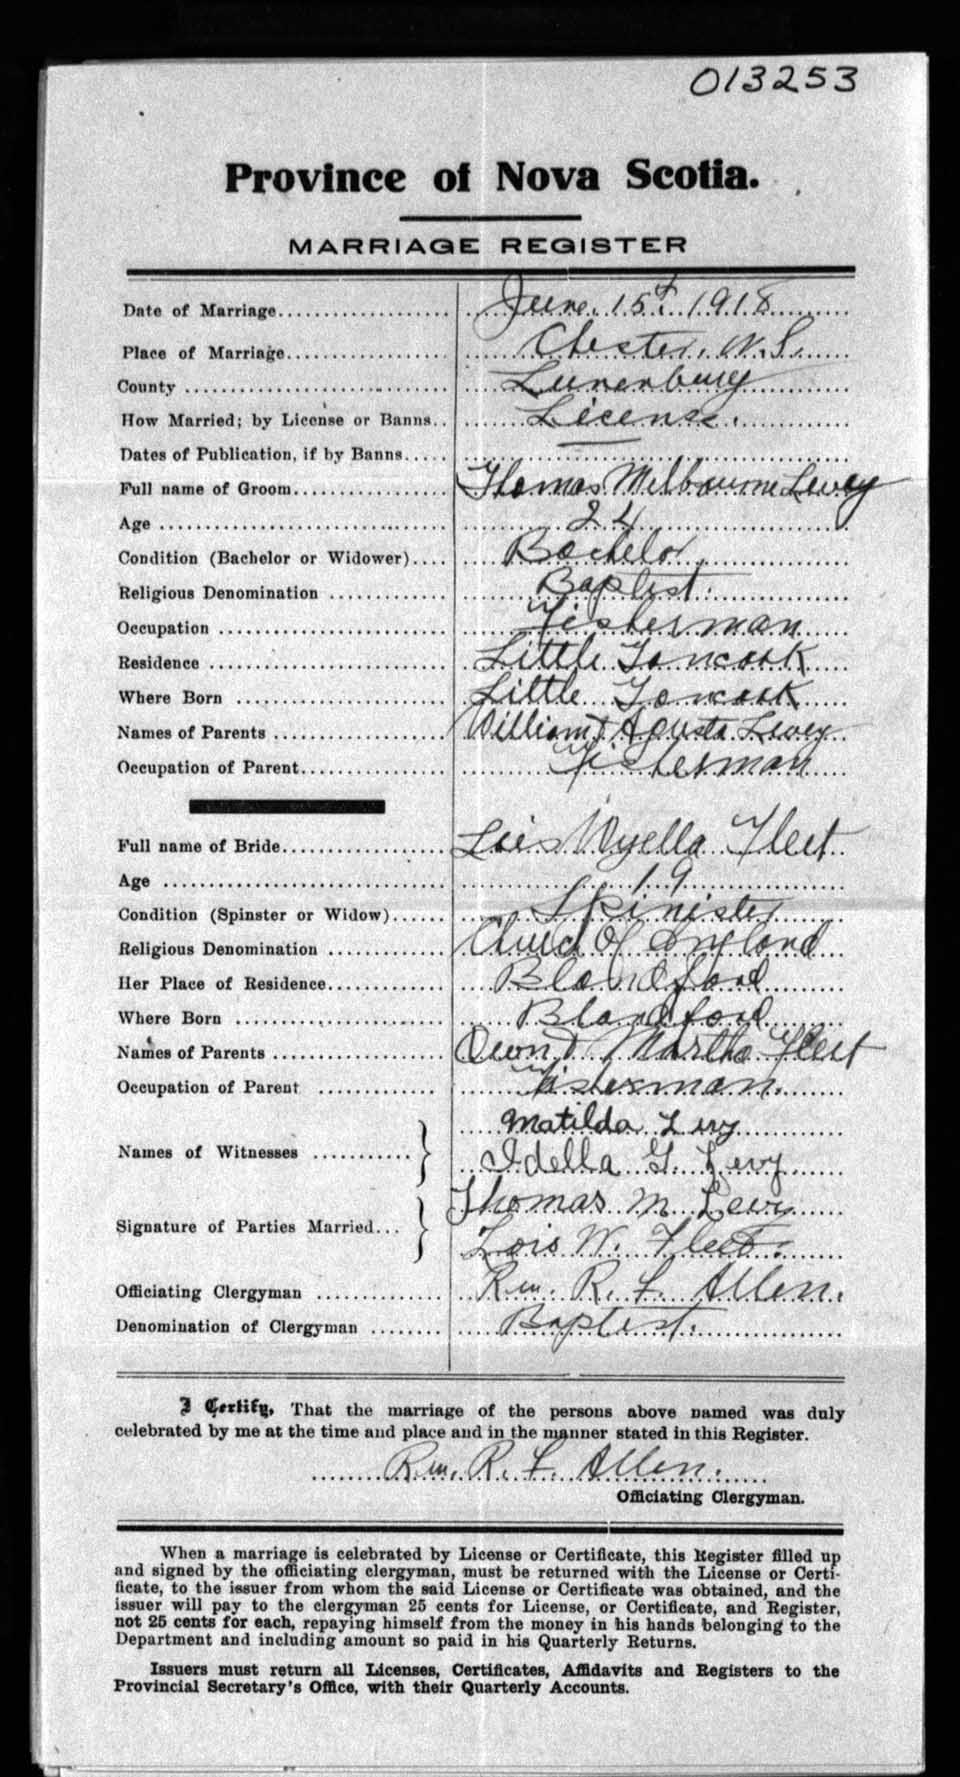 013253
Province of Nova Scotia.
MARRIAGE REGISTER
Date of Marriage June. 15t. 1918
Place of Marriage Chester. N.S.
County Lunenburg
How Married; by License or Banns License.
Dates of Publication, if by Banns —
Full name of Groom Thomas Melbourne Levey
Age 24
Condition (Bachelor or Widower) Bachelor
Religious Denomination Baptist.
Occupation Fisherman
Residence Little Tancook
Where Born Little Tancook
Names of Parents William & Agusta Levey
Occupation of Parent Fisherman
Full name of Bride Lois Wyella Fleet
Age 19
Condition (Spinster or Widow) Spinister
Religious Denomination Church Of England
Her Place of Residence Blandford
Where Born Blandford
Names of Parents Owen & Martha Fleet
Occupation of Parent Fisherman.
Matilda Levy
Names of Witnesses
Idella G. Levy
Thomas M. Levy
Signature of Parties Married
Lois W. Fleet.
Officiating Clergyman Rev. R. F. Allen.
Denomination of Clergyman Baptist.
I Certify, That the marriage of the persons above named was duly
celebrated by me at the time and place and in the manner stated in this Register.
Rev. R. F. Allen.
Officiating Clergyman.
When a marriage is celebrated by License or Certificate, this Register filled up
and signed by the officiating clergyman, must be returned with the License or Certi-
ficate, to the issuer from whom the said License or Certificate was obtained, and the
issuer will pay to the clergyman 25 cents for License, or Certificate, and Register,
not 25 cents for each, repaying himself from the money in his hands belonging to the
Department and including amount so paid in his Quarterly Returns.
Issuers must return all Licenses, Certificates, Affidavits and Registers to the
Provincial Secretary's Office, with their Quarterly Accounts.